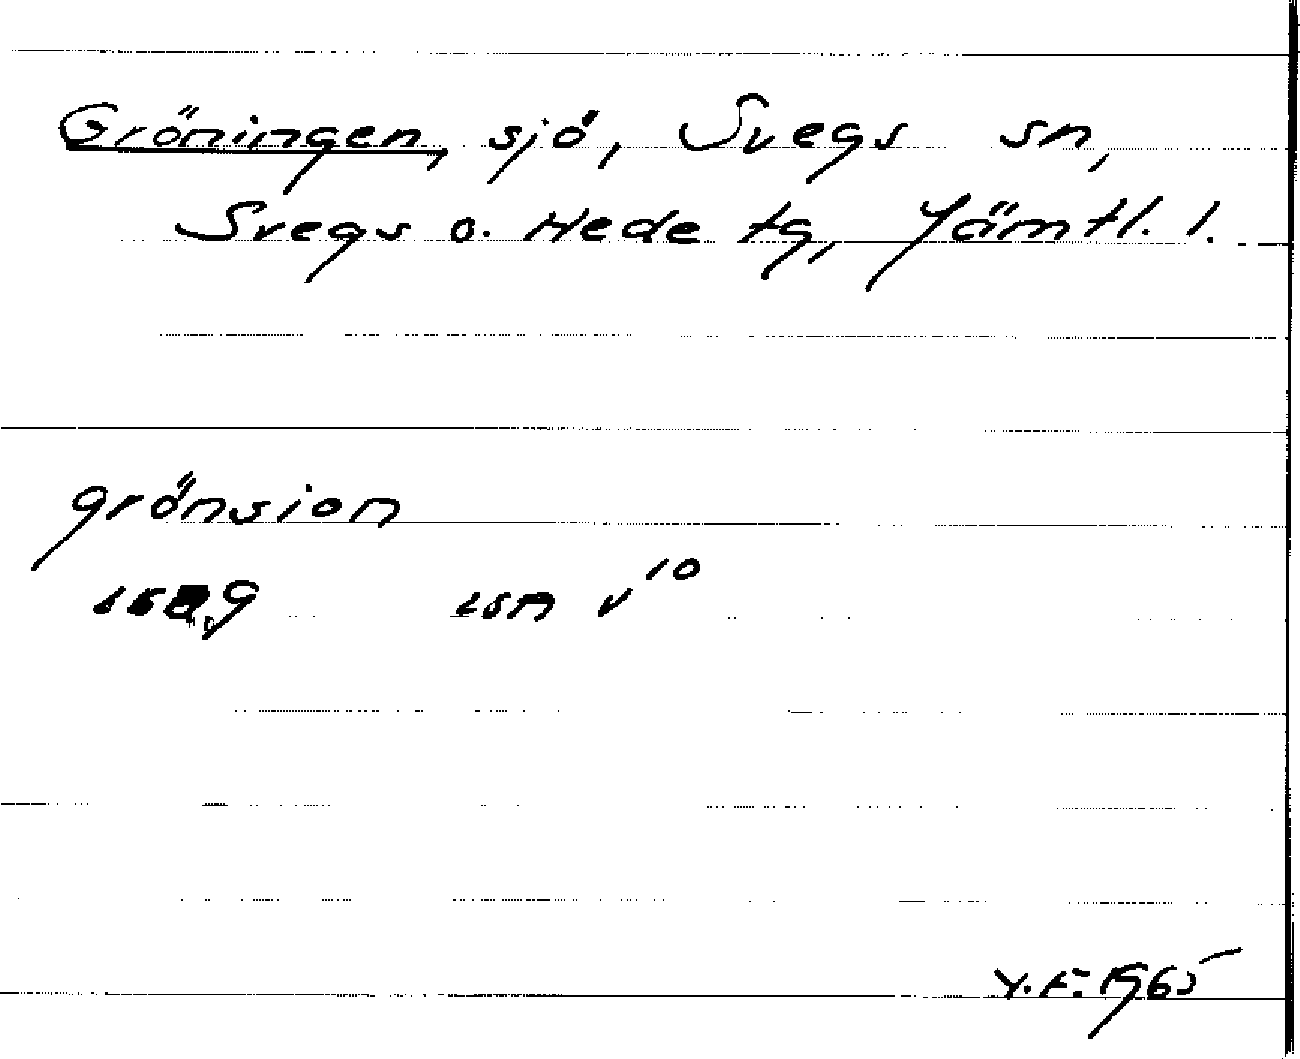 Gröningen, sjö, Svegs sn,
Svegs o. Hede tg, Jämtl. l.
grönsion
LSA V¹⁰
Y. F. 1965